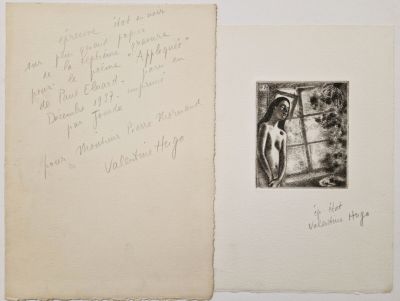 épreuve état en noir
sur plus grand papier
de la septième gravure
pour le poème "Appliquée"
de Paul Eluard - paru en
Décembre 1937 - imprimé
par Jourde
pour Monsieur Pierre Normand
Valentine Hugo
ép. état
Valentine Hugo